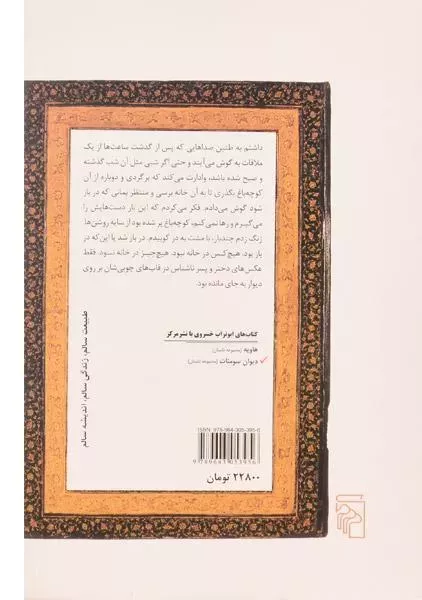 داشتم به طنین صداهایی که پس از گذشت ساعت‌ها از یک
ملاقات به گوش می‌آیند و حتی اگر شبی مثل آن شب گذشته
و صبح شده باشد، وادارت می‌کند که برگردی و دوباره از آن
کوچه‌باغ بگذری تا به آن خانه برسی و منتظر بمانی که در باز
شود گوش می‌دادم. فکر می‌کردم که این بار دست‌هایش را
می‌گیرم و رها نمی‌کنم، کوچه‌باغ پر شده بود از سایه روشن‌ها
زنگ زدم چندبار، با مشت به در کوبیدم. در باز شد یا این‌که در
باز بود. هیچ‌کس در خانه نبود. هیچ‌چیز در خانه نبود. فقط
عکس‌های دختر و پسر ناشناس در قاب‌های چوبی‌شان بر روی
دیوار به جای مانده بود.
کتاب‌های ابوتراب خسروی با نشرمرکز
هاویه (مجموعه داستان)
✓ دیوان سومنات (مجموعه داستان)
طبیعت سالم، زندگی سالم، اندیشه سالم
ISBN: 978-964-305-395-6
9 789643 053956
۲۲۸۰۰ تومان